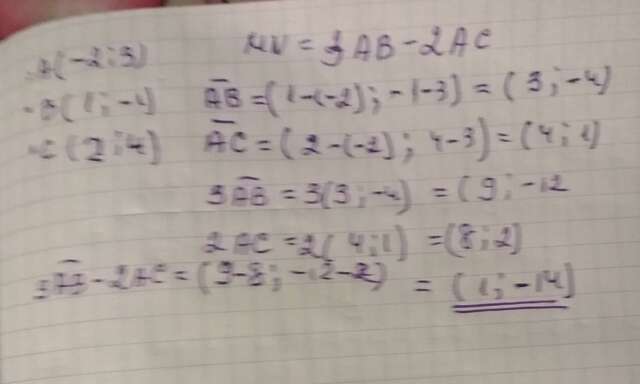 A(-2;3)
MN = 3AB-2AC
B(1;-1)
AB = (1-(-2); -1-3) = (3; -4)
C(2;4)
AC = (2-(-2); 4-3) = (4; 1)
3AB = 3(3;-4) = (9; -12
2AC = 2(4;1) = (8;2)
3AB-2AC = (9-8; -12-2) = (1; -14)